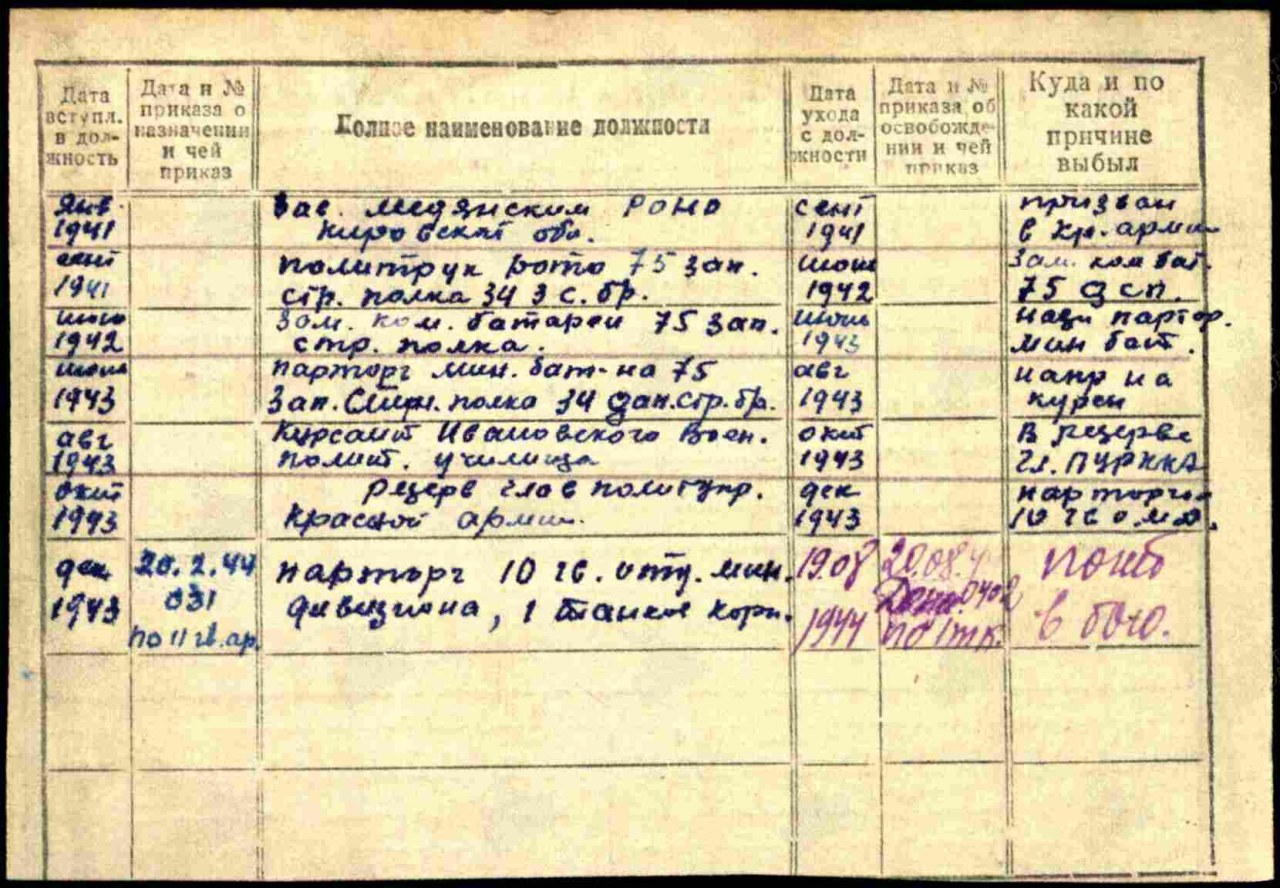 Дата вступл. в должность
Дата и № приказа о назначении и чей приказ
Полное наименование должности
Дата ухода с должности
Дата и № приказа об освобождении и чей приказ
Куда и по какой причине выбыл
Янв. Зав. Медянским РОНО сент призван
1941 Кировской обл. 1941 в Кр. армию
сент политрук роты 75 зап. июнь Зам. ком бат.
1941 стр. полка 34 з с. бр. 1942 75 з сп.
июнь Зам. ком. батареи 75 зап. июнь назн партор.
1942 стр. полка. 1943 мин бат.
июнь парторг мин. бат-на 75 авг напр на
1943 Зап. Стр. полка 34 зап. стр. бр. 1943 курсы
авг Курсант Ивановского воен. окт В резерве
1943 полит. училища 1943 Гл. ПУРККА
окт резерв глав политупр. дек парторг
1943 Красной армии. 1943 10 гв о.м.д.
дек 20.2.44 парторг 10 гв. отд. мин. 19.08 20.08.4 погиб
1943 031 дивизиона, 1 танков корп. 1944 0402 в бою.
по 11 гв. ар. по 1 тк.